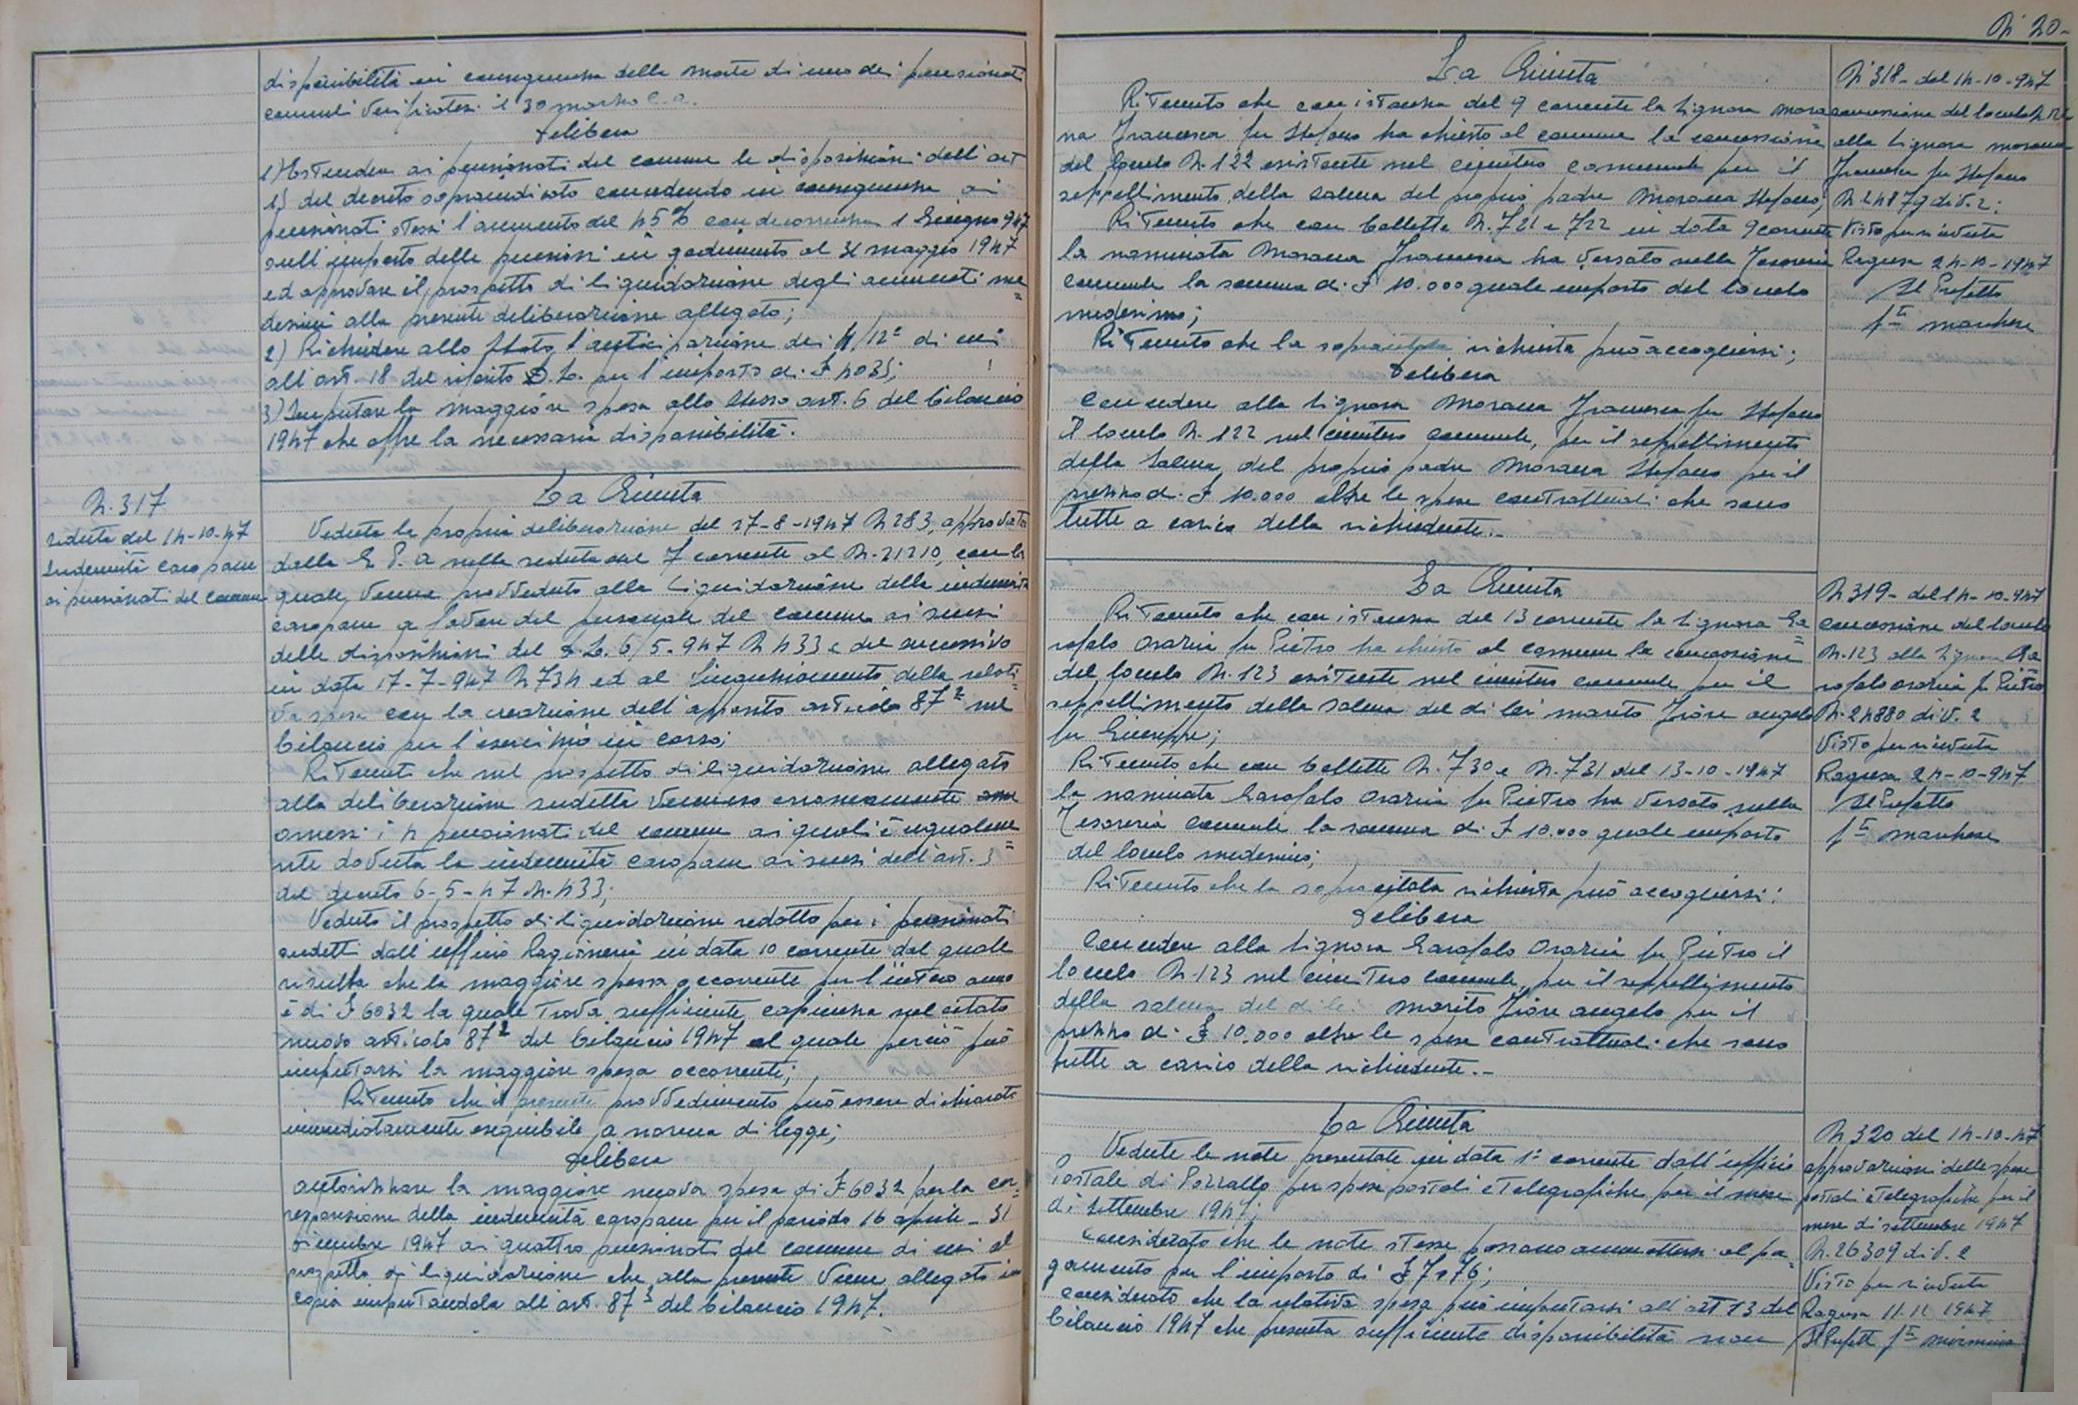 disponibilità in conseguenza della morte di uno dei pensionati
comunali verificatesi il 30 marzo c.a.
Delibera
1) Estendere ai pensionati del comune le disposizioni dell'art
15 del decreto sopraindicato concedendo in conseguenza ai
pensionati stessi l'aumento del 45% con decorrenza 1 Giugno 947
sull'importo delle pensioni in godimento al 31 maggio 1947
ed approvare il prospetto di liquidazione degli aumenti me=
desimi alla presente deliberazione allegato;
2) Richiedere allo Stato l'anticipazione dei 4/12 di cui
all'art. 18 del riferito D.L. per l'importo di £ 4035;
3) Imputare la maggiore spesa allo stesso art. 6 del bilancio
1947 che offre la necessaria disponibilità.
N. 317
seduta del 14-10-47
Indennità caro pane
ai pensionati del comune
La Giunta
Veduta la propria deliberazione del 27-8-1947 N 283, approvata
dalla G.P.A nella seduta del 7 corrente al N. 21210, con la
quale venne provveduto alla liquidazione della indennità
caropane a favore del personale del comune ai sensi
delle disposizioni del D.L. 6/5-947 N 433 e del successivo
in data 17-7-947 N 734 ed al finanziamento della relati=
va spesa con la creazione dell'apposito articolo 87² nel
bilancio per l'esercizio in corso;
Ritenuti che nel prospetto di liquidazione allegato
alla deliberazione sudetta vennero erroneamente
omessi i 4 pensionati del comune ai quali è ugualme=
nte dovuta la indennità caropane ai sensi dell'art. 3
del decreto 6-5-47 N. 433;
Veduto il prospetto di liquidazione redatto per i pensionati
sudetti dall'ufficio Ragioneria in data 10 corrente dal quale
risulta che la maggiore spesa occorrente per l'intero anno
è di £ 6032 la quale trova sufficiente capienza nel citato
nuovo articolo 87² del bilancio 1947 al quale perciò può
imputarsi la maggiore spesa occorrente;
Ritenuto che il presente provvedimento può essere dichiarato
immediatamente eseguibile a norma di legge;
Delibera
autorizzare la maggiore nuova spesa di £ 6032 per la cor=
responsione della indennità caropane per il periodo 16 aprile - 31
dicembre 1947 ai quattro pensionati del comune di cui al
prospetto di liquidazione che alla presente viene allegato in
copia imputandola all'art. 87² del bilancio 1947.
N° 20-
La Giunta
Ritenuto che con istanza del 9 corrente la Signora Mora
na Francesca fu Stefano ha chiesto al comune la concessione
del loculo N. 122 esistente nel cimitero comunale per il
seppellimento della salma del proprio padre Morana Stefano;
Ritenuto che con bollette N. 721 e 722 in data 9 corrente
la nominata Morana Francesca ha versato nella Tesoreria
comunale la somma di £ 10.000 quale importo del loculo
medesimo;
Ritenuto che la sopracitata richiesta può accogliersi;
Delibera
Concedere alla Signora Morana Francesca fu Stefano
il loculo N. 122 nel cimitero comunale, per il seppellimento
della salma del proprio padre Morana Stefano per il
prezzo di £ 10.000 oltre le spese contrattuali che sono
tutte a carico della richiedente.-
N 318- del 14-10-947
concessione del loculo N 122
alla Signora Morana
Francesca fu Stefano
N 24879 div. 2:
Visto per ricevuta
Ragusa 24-10-1947
Il Prefetto
fto Marchese
La Giunta
Ritenuto che con istanza del 13 corrente la Signora Ga=
rofalo Orazia fu Pietro ha chiesto al comune la concessione
del loculo N. 123 esistente nel cimitero comunale per il
seppellimento della salma del di lei marito Fiore Angelo
fu Giuseppe;
Ritenuto che con bollette N. 730 e N. 731 del 13-10-1947
la nominata Garofalo Orazia fu Pietro ha versato nella
Tesoreria comunale la somma di £ 10.000 quale importo
del loculo medesimo;
Ritenuto che la sopracitata richiesta può accogliersi:
Delibera
Concedere alla Signora Garofalo Orazia fu Pietro il
loculo N 123 nel cimitero comunale, per il seppellimento
della salma del di lei marito Fiore Angelo per il
prezzo di £ 10.000 oltre le spese contrattuali che sono
tutte a carico della richiedente.-
N 319- del 14-10-947
concessione del loculo
N. 123 alla Signora Ga
rofalo Orazia fu Pietro
N. 24880 div. 2
Visto per ricevuta
Ragusa 24-10-947
Il Prefetto
fto Marchese
La Giunta
Vedute le note presentate in data 1° corrente dall'ufficio
Postale di Pozzallo per spese postali e telegrafiche per il mese
di Settembre 1947;
Considerato che le note stesse possono ammettersi al pa=
gamento per l'importo di £ 7176;
Considerato che la relativa spesa può imputarsi all'art 13 del
bilancio 1947 che presenta sufficiente disponibilità non
N 320 del 14-10-47
approvazione delle spese
postali e telegrafiche per il
mese di settembre 1947
N. 26309 div. 2
Visto per ricevuta
Ragusa 11.11 1947
Il Prefetto fto